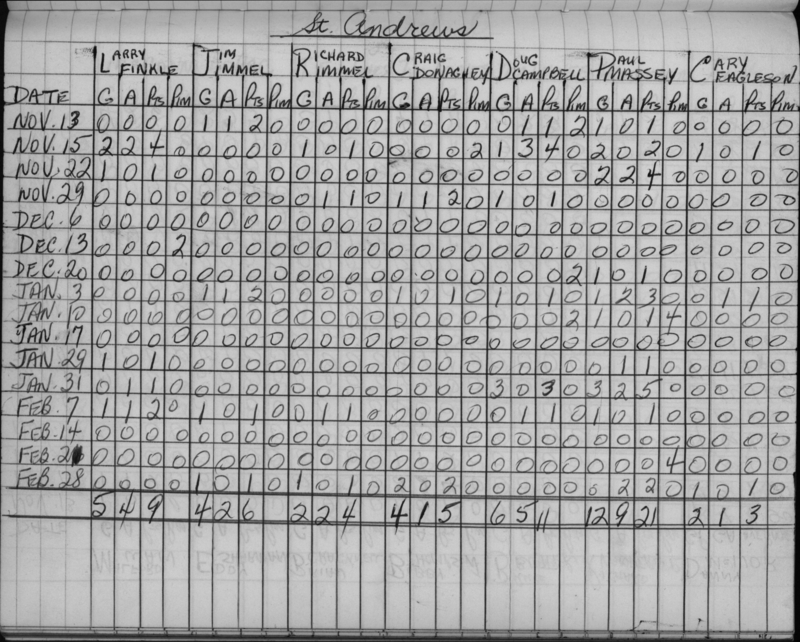 St. Andrews
LARRY FINKLE JIM JIMMEL RICHARD RIMMEL CRAIG DONAGHEY DOUG CAMPBELL PAUL MASSEY CARY EAGLESON
DATE G A Pts Pim G A Pts Pim G A Pts Pim G A Pts Pim G A Pts Pim G A Pts Pim G A Pts Pim
NOV. 13 0 0 0 0 1 1 2 0 0 0 0 0 0 0 0 0 0 1 1 2 1 0 1 0 0 0 0 0
NOV. 15 2 2 4 0 0 0 0 0 1 0 1 0 0 0 0 2 1 3 4 0 2 0 2 0 1 0 1 0
NOV. 22 1 0 1 0 0 0 0 0 0 0 0 0 0 0 0 0 0 0 0 0 2 2 4 0 0 0 0 0
NOV. 29 0 0 0 0 0 0 0 0 0 1 1 0 1 1 2 0 1 0 1 0 0 0 0 0 0 0 0 0
DEC. 6 0 0 0 0 0 0 0 0 0 0 0 0 0 0 0 0 0 0 0 0 0 0 0 0 0 0 0 0
DEC. 13 0 0 0 2 0 0 0 0 0 0 0 0 0 0 0 0 0 0 0 0 0 0 0 0 0 0 0 0
DEC. 20 0 0 0 0 0 0 0 0 0 0 0 0 0 0 0 0 0 0 0 2 1 0 1 0 0 0 0 0
JAN. 3 0 0 0 0 1 1 2 0 0 0 0 0 1 0 1 0 1 0 1 0 1 2 3 0 0 1 1 0
JAN. 10 0 0 0 0 0 0 0 0 0 0 0 0 0 0 0 0 0 0 0 2 1 0 1 4 0 0 0 0
JAN. 17 0 0 0 0 0 0 0 0 0 0 0 0 0 0 0 0 0 0 0 0 0 0 0 0 0 0 0 0
JAN. 29 1 0 1 0 0 0 0 0 0 0 0 0 0 0 0 0 0 0 0 0 0 1 1 0 0 0 0 0
JAN. 31 0 1 1 0 0 0 0 0 0 0 0 0 0 0 0 0 3 0 3 0 3 2 5 0 0 0 0 0
FEB. 7 1 1 2 0 1 0 1 0 0 1 1 0 0 0 0 0 0 1 1 0 1 0 1 0 0 0 0 0
FEB. 14 0 0 0 0 0 0 0 0 0 0 0 0 0 0 0 0 0 0 0 0 0 0 0 0 0 0 0 0
FEB. 21 0 0 0 0 0 0 0 0 0 0 0 0 0 0 0 0 0 0 0 0 0 0 0 4 0 0 0 0
FEB. 28 0 0 0 0 1 0 1 0 1 0 1 0 2 0 2 0 0 0 0 0 0 2 2 0 1 0 1 0
5 4 9 4 2 6 2 2 4 4 1 5 6 5 11 12 9 21 2 1 3